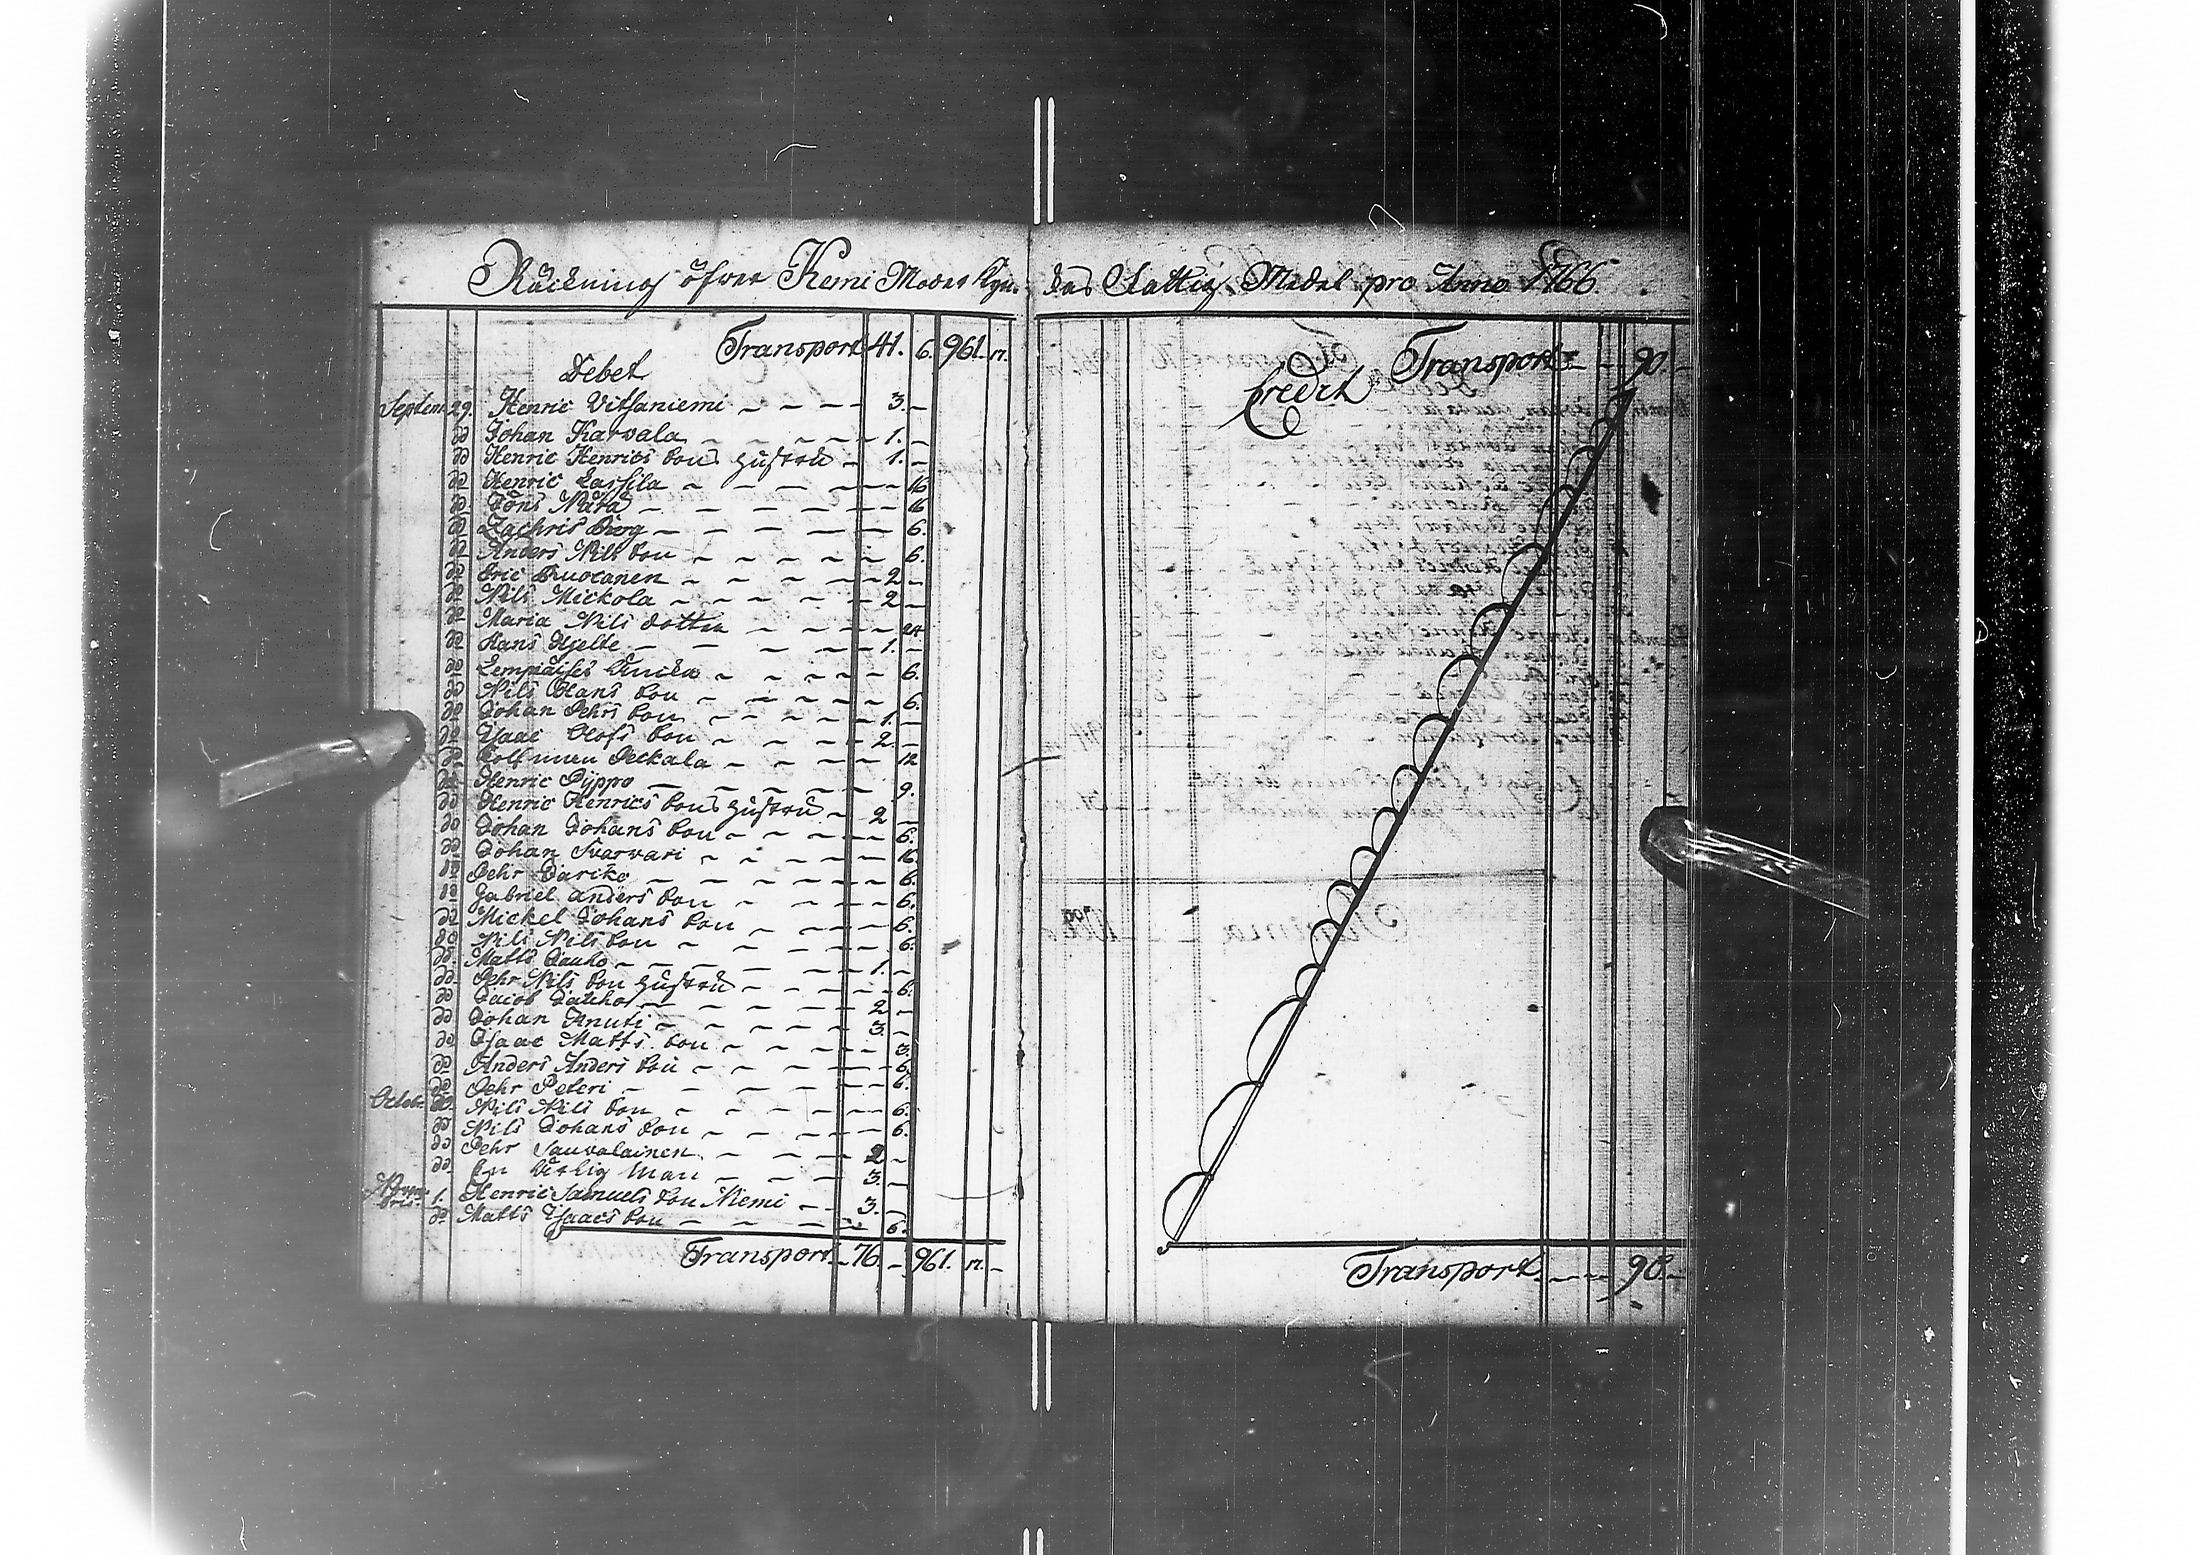 Räckning öfver Kemi Moder Kyrc- kas Fattig Medel pro Anno 1766.
Transport 41. 6. 961. 17.
Debet
Septem. 29. Henric Vitsaniemi - - - - 3. -
do Johan Karvala - - - - 1. -
do Henric Henrics Sons Hustru - 1. -
do Henric Lassila - - - - - 16
do Jöns Närä - - - - - 16
do Zachris Berg - - - - - 6.
do Anders Nils Son - - - - - 6.
do Eric Buucanen - - - - 2 -
do Nils Mickola - - - - 2 -
do Maria Nils dotter - - - - 24
do Hans Hjelte - - - - 1. -
do Lempiäises Enicka - - - - 6.
do Nils Hans Son - - - - 6.
do Johan Pehrs Son - - - - 1. -
do Isaac Olofs Son - - - - 2. -
do Peckala - - - - 12
do Henric Pyppo - - - - 9.
do Henric Henrics Sons Hustru - 2 -
do Johan Johans Son - - - - 6.
do Johan Svarvari - - - - 16.
do Pehr Dariko - - - - 6.
do Gabriel Anders Son - - - - 6.
do Mickel Johans Son - - - - 6.
do Nils Nils Son - - - - 6.
do Matts Jauho - - - - 1. -
do Pehr Nils Son Hustru - - - - 6.
do Jacob Jauho - - - - 2 -
do Johan Knuti - - - - 3. -
do Isaac Matts Son - - - - 3.
do Anders Anders Son - - - - 6.
do Pehr Peteri - - - - 6.
Octob. do Nils Nils Son - - - - 6.
do Nils Johans Son - - - - 6.
do Pehr Sauvalainen - - - 2 -
do En Ärlig Man - - - 3. -
1. Henric Samuels Son Niemi - - 3. -
do Matts Isaacs Son - - - - 6.
Transport - 76 - 961. 17. -
Transport - - 90. -
Credit
Transport - - - 90. -